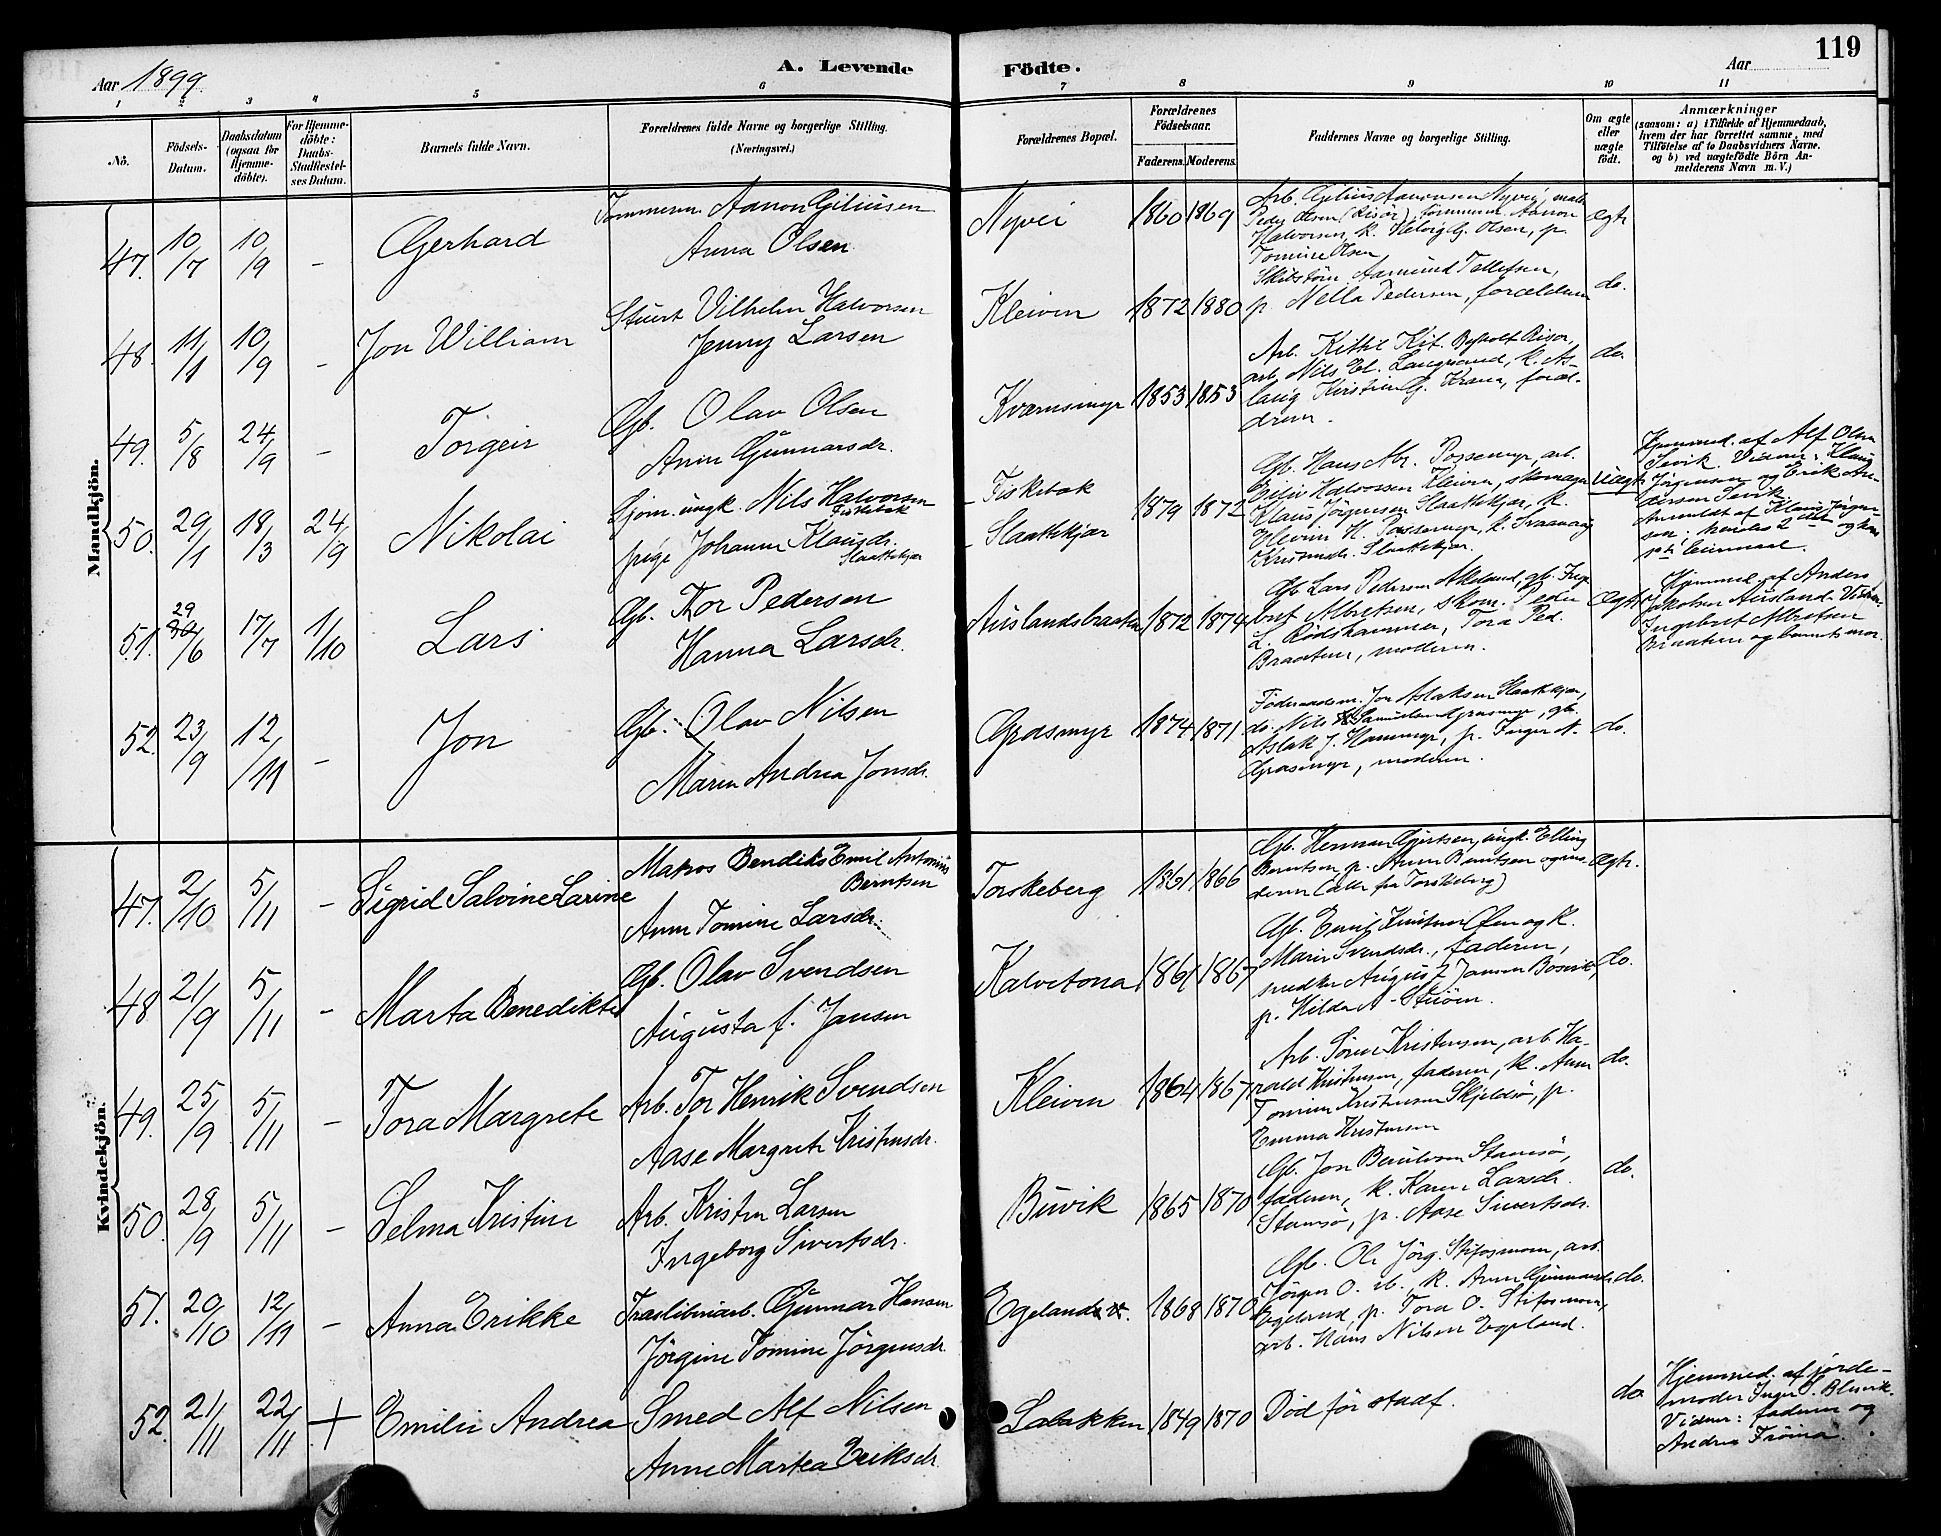 Aar 1899.
A. Levende Födte.
Aar
119
1 2 3 4 5 6 7 8 9 10 11
No.
Födsels-Datum.
Daabsdatum (ogsaa for Hjemme-döbte).
For Hjemme-döbte: Daabs-Stadfæstel-ses Datum.
Barnets fulde Navn.
Forældrenes fulde Navne og borgerlige Stilling.
(Næringsvei.)
Forældrenes Bopæl.
Forældrenes Födselsaar.
Faderens. Moderens.
Faddernes Navne og borgerlige Stilling.
Om ægte eller uægte födt.
Anmærkninger
(saasom: a) i Tilfælde af Hjemmedaab,
hvem der har forrettet samme, med
Tilföielse af to Daabsvidners Navne.
og b) ved uægtefödte Börn An-
melderens Navn m. V.)
Mandkjön.
47. 10/7 10/9 - Gerhard
Tömmerm Aanon Giliusen
Anna Olsen
Nyvei 1860 1869
Halvorsen, k. Helvig G. Olsen, p.
Tomine Olsen
Ægte
48. 11/1 10/9 - Jon William
Stuert Vilhelm Halvorsen
Jenny Larsen
Kleiven 1872 1880
Skibstöm Aamund Tellefsen,
p Nella Pedersen, forældrene
do.
49. 5/8 24/9 - Torgeir
Gb. Olav Olsen
Anne Gunnarsdr.
Kvernsmyr 1853 1853
arb. Nils El. Langsand, k. As-
laug Kirstine G. Krana, foræl-
drene.
do.
50. 29/1 18/3 24/9 Nikolai
Sjöm. ungk. Nils Halvorsen
Fiskebæk
pige Johanne Klausdr.
Slaatkjær
- Fiskebæk
- Slaatkjær
1879 1872
Gb. Hans Abr. Possemyr, arb.
Klaus Jörgensen Slaatkjær, k.
Uægte
Hjemmed. af Alf Olsen
Sevik. Vidner: Klaus
Jörgensen og Erik An-
dersen Sevik
Anmeldt af Klaus Jörgen-
51. 29/6 17/7 1/10 Lars
Gb. Tor Pedersen
Hanna Larsdr.
Auslandsbraaten 1872 1874
Gb Lars Pedersen Akeland, gb. Inge-
bret Albretsen, skom. Peder
L. Rödshammer, Tora Ped.
Braaten, moderen.
Ægte
Hjemmed. af Anders
Jakobsen Ausland. Vidner:
Ingebret Albretsen
Braaten og barnets mor.
52. 23/9 12/11 - Jon
Gb. Olav Nilsen
Maren Andrea Jonsdr.
Græsmyr 1874 1871
Föderaadsm. Jon Aslaksen Slaatkjær,
do. Nils Samuelsen Græsmyr, gb.
Aslak J. Hammyr, p. Inger N.
Græsmyr, moderen.
do.
Kvindekjön.
47. 2/10 5/11 - Sigrid Salvine Larine
Matros Bendiks Emil Antonius
Berntsen
Anne Tomine Larsdr.
Torskeberg 1861 1866
Gb. Herman Gjertsen, ungk. Elling
Berntsen, p. Anna Berntsen og mo-
deren (alle fra Torskeberg)
Ægte.
48 21/9 5/11 - Marta Benedikte
Gb. Olav Svendsen
Augusta f. Jansen
Kalvetona 1861 1867
Gb. Emil Knutsen Öen og k.
Maren Svendsdr., faderen,
snedker August Jansen Bosvik,
p. Hilda A. Ström.
do.
49. 25/9 5/11 - Tora Margrete
Arb. Tor Henrik Svendsen
Aase Margrete Kristensdr.
Kleiven 1864 1867
Arb. Sören Kristensen, arb. Ha-
rald Kristensen, faderen, k. Anne
Tomine Kristensen Skjeldsö, p.
Emma Kristensen
do.
50. 28/9 5/11 - Selma Kristine
Arb. Kristen Larsen
Ingeborg Sivertsdr.
Buvik 1865 1870
Gb. Jon Bentsen Stamsö,
faderen, k. Karen Larsdr.
Stamsö, p. Aase Sivertsdr.
do.
51. 20/10 12/11 - Anna Erikke
Træsliberiarb. Gunnar Hansen
Jörgine Tomine Jörgensdr.
Egeland v. 1868 1870
Gb. Ole Jörg. Stifosmoen, arb.
Jörgen O. ib., k. Anne Gunnarsdr.
Egeland, p. Tora O. Stifosmoen,
arb. Hans Nilsen Egeland.
do.
52. 21/11 22/11 + Emilie Andrea
Smed Alf Nilsen
Anne Martea Eriksdr.
1849 1870
Död för stadf.
do
Hjemmed. af jorde-
moder Inger
Vidner: faderen og
Andrea Fröina.